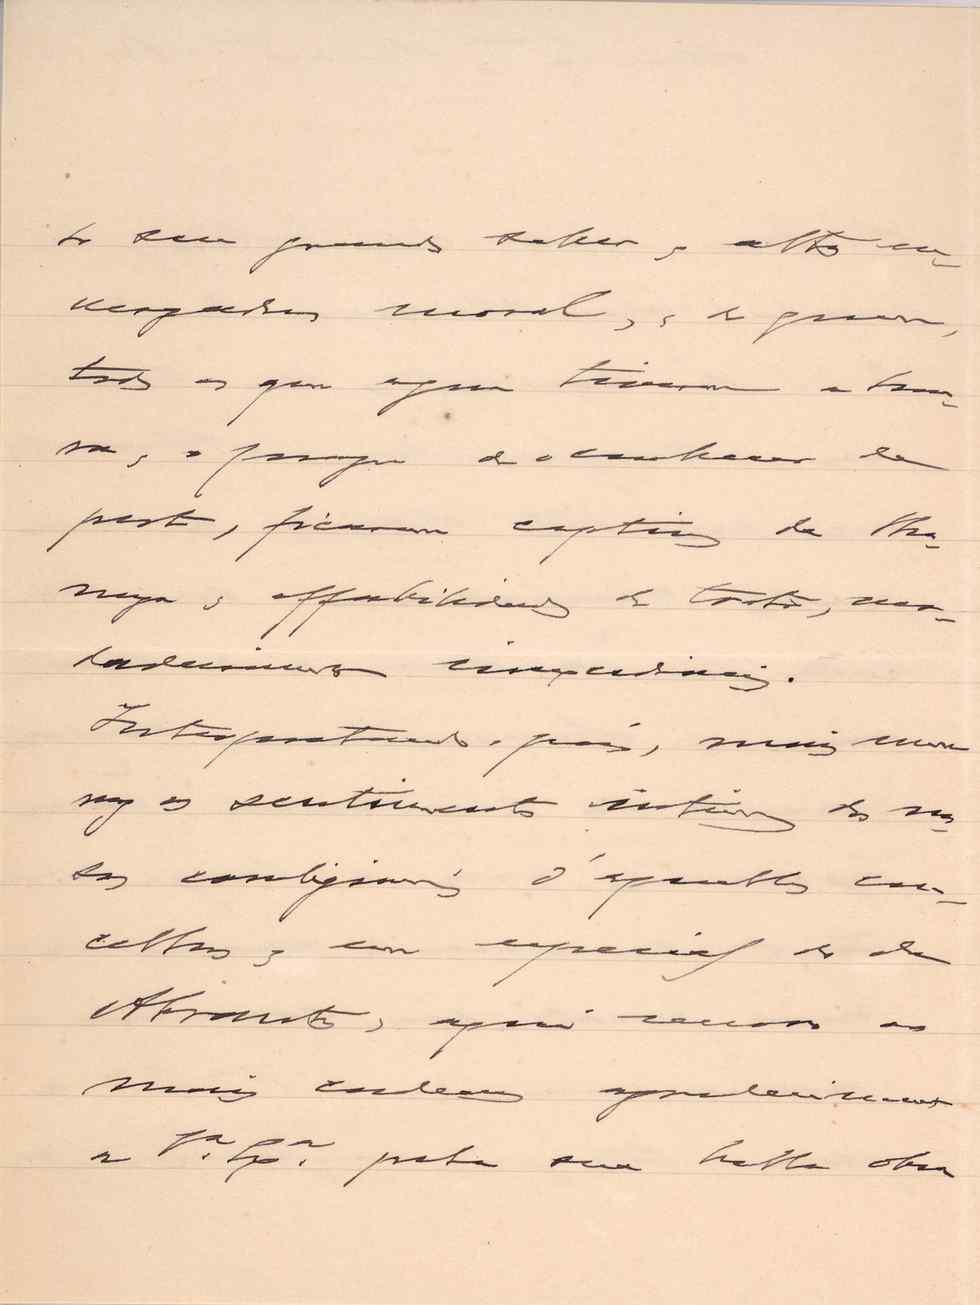 do seu grande saber, e alta en-
vergadura moral, e de quem,
todos os que agora tiveram a hon-
ra, e o prazer de o conhecer de
perto, ficaram captivos da lha-
neza e affabilidade de trato, ver-
dadeiramente
Interpretando, pois, mais uma
vez os sentimentos intimos dos nos-
sos correligionarios d'aquelles con-
celhos, e em especial do de
Abrantes, aqui renovo os
mais cordeaes agradecimentos
a V.ª Ex.ª pela sua bella obra